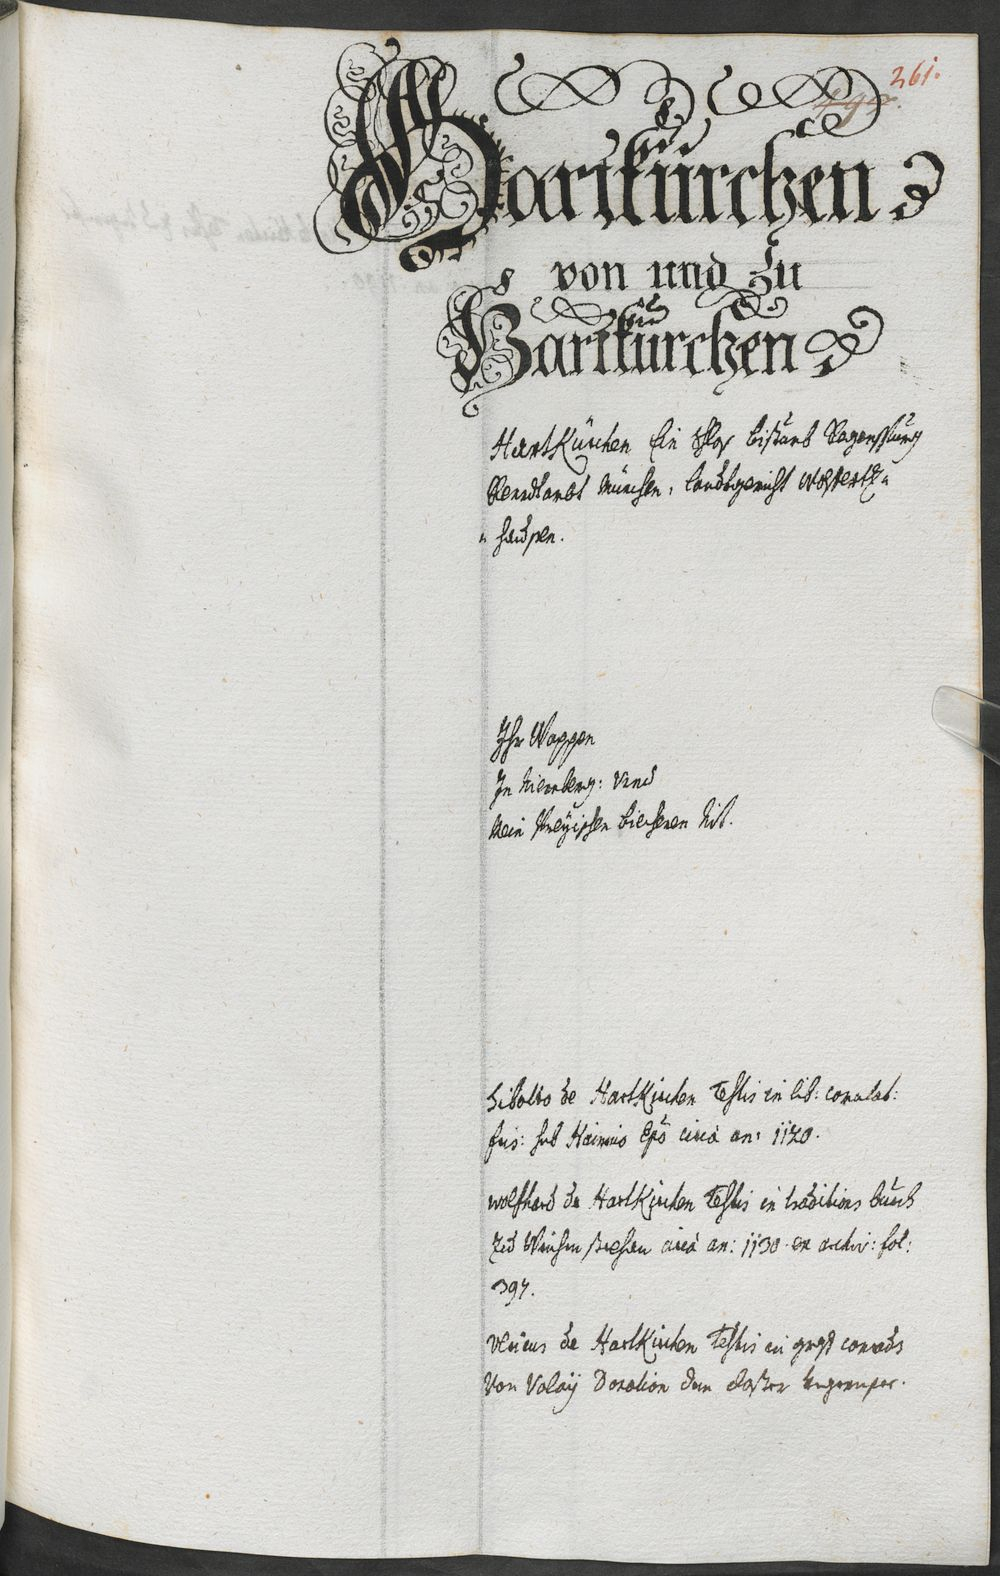 261.
Hartkürchen
von und zu
Hartkürchen
HartKürchen Ein Schlos bistumb Regenspurg
Renndtambt München, landtgericht Wolferts„
„hausen.
Ihr Wappen
In Niernberg: vnd
kein Preÿsischen biecheren Nit.
Sibolto de HartKirchen Testis in lib: comutat:
fris: sub Hainrico Epo circa an: 1120.
Wolfhard de HartKirchen Testis in traditions buech
zu Weichenstephan circa an: 1130. ex archiv: fol:
394.
Vlricus de HartKirchen Testis in graf conrads
Von Valaÿ Donation dem closter